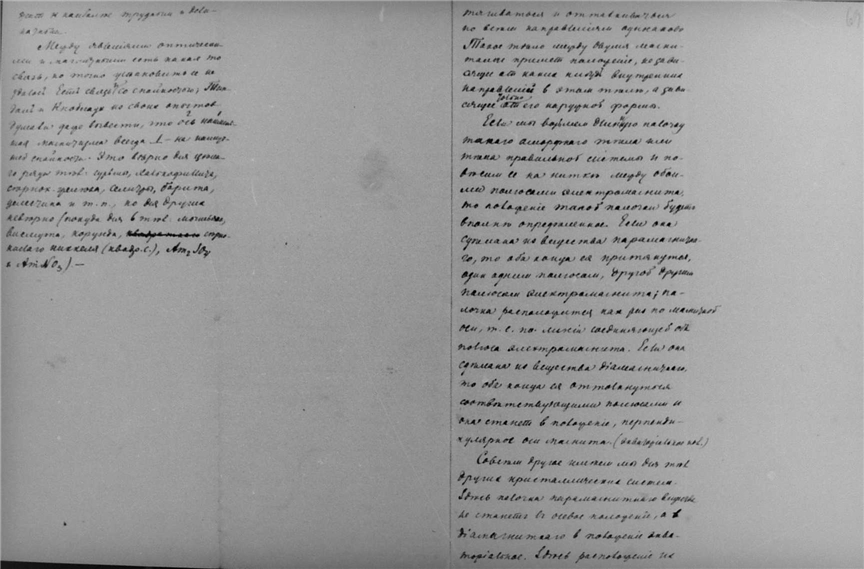 и наиболее трудным и дока-
зать.
Между явлениями оптически-
ми и магнитными есть какая то
связь, но точно установить ее не
удалось. Есть связь со спайностью; Тин-
даль и Кноблаух из своих опытов
думали даже вывести, что ось
магнитная всегда ⊥ на
спайности. Это верно для цело-
го ряда тѣл:
селитры, барита,
целестина и т. п., но для других
неверно (
висмута, корунда,
никеля (квадр. с.), Am₂ SO₄
и AmNO₃). —
тягиваться и отталкиваться
по всем направлениям одинаково
Такое тѣло между двумя магни-
тами примет положение, не зави-
сящее от каких нибудь внутренних
направлений в этом тѣле, а зави-
сящее только от его наружной формы.
Если мы возьмем длинную палочку
такого аморфного тѣла или
тѣла правильной системы и по-
весим ее на нитке между обои-
ми полюсами электромагнита,
то положение такой палочки будет
вполне определенное. Если она
сделана из вещества парамагнитна-
го, то оба конца ея притянутся,
один одним полюсом, другой другим
полюсом электромагнита; па-
лочка расположится как раз по магнитной
оси, т. е. по линии соединяющей оба
полюса электромагнита. Если она
сделана из вещества діамагнитнаго,
то оба конца ея оттолкнутся
соответствующими полюсами и
она станет в положение, перпенди-
кулярное оси магнита. (экваторіальное пол.)
Совсем другое имеем мы для тѣл
других кристаллических систем.
Здесь палочка парамагнитнаго вещества
не станет в осевое положение, а
діамагнитнаго в положение эква-
торіальное. Здесь расположение их